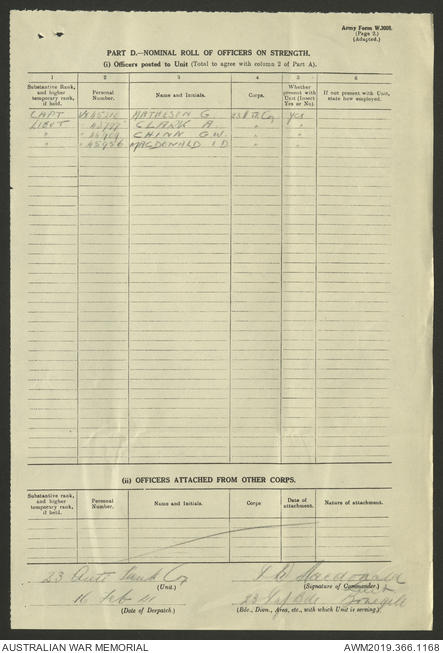 Army Form W.3008.
(Page 2.)
(Adapted.)
PART D.—NOMINAL ROLL OF OFFICERS ON STRENGTH.
(i) Officers posted to Unit (Total to agree with column 2 of Part A).
1 2 3 4 5 6
Substantive Rank, and higher temporary rank, if held.
Personal Number.
Name and Initials.
Corps.
Whether present with Unit (Insert Yes or No).
If not present with Unit, state how employed.
CAPT MATHESON G. Yes
LIEUT CLARK A. " "
" CHINN G.W. " "
" MACDONALD I D " "
(ii) OFFICERS ATTACHED FROM OTHER CORPS.
Substantive rank, and higher temporary rank, if held.
Personal Number.
Name and Initials.
Corps
Date of attachment.
Nature of attachment.
23 Anti Tank Coy Macdonald
(Unit.) (Signature of Commander.)
Lieut
16 Feb 41 23 Inf Bde Bonegilla
(Date of Despatch.) (Bde., Divn., Area, etc., with which Unit is serving.)
AUSTRALIAN WAR MEMORIAL AWM2019.366.1168